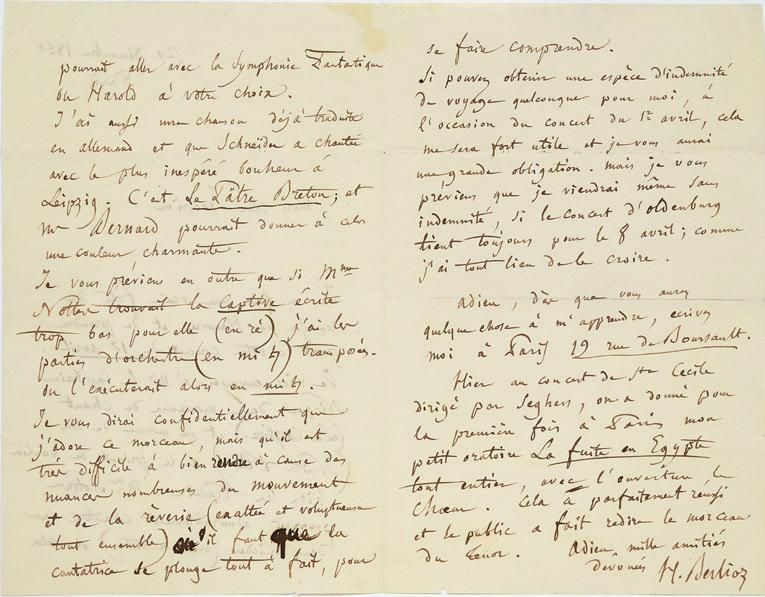 pourrait aller avec la Symphonie Fantastique
ou Harold à votre choix.
J'ai aussi une chanson déjà traduite
en allemand et que Schneider a chantée
avec le plus inespéré bonheur à
Leipzig. C'est Le Pâtre Breton; et
Mr Bernard pourrait donner à cela
une couleur charmante.
Je vous préviens en outre que si Mme
Nottes trouvait la Captive écrite
trop bas pour elle (en ré) j'ai les
parties d'orchestre (en mi ♮) transposées.
on l'exécuterait alors en mi ♮.
Je vous dirai confidentiellement que
j'adore ce morceau, mais qu'il est
très difficile à bien rendre à cause des
nuances nombreuses du mouvement
et de la rêverie (exaltée et voluptueuse
tout ensemble) où il faut que la
cantatrice se plonge tout à fait, pour
se faire comprendre.
Si pouvez obtenir une espèce d'indemnité
de voyage quelconque pour moi, à
l'occasion du concert du 1er avril, cela
me sera fort utile et je vous aurai
une grande obligation. mais je vous
préviens que je viendrai même sans
indemnité, si le concert d'oldenburg
tient toujours pour le 8 avril; comme
j'ai tout lieu de le croire.
Adieu, dès que vous aurez
quelque chose à m'apprendre, ecrivez
moi à Paris 19 rue de Boursault.
Hier au concert de Ste Cecile
dirigé par Seghers, on a donné pour
la première fois à Paris mon
petit oratorio La fuite en Egypte
tout entier, avec l'ouverture le
Chœur. Cela a parfaitement réussi
et le public a fait redire le morceau
du Tenor.
Adieu, mille amitiés
devouées H. Berlioz